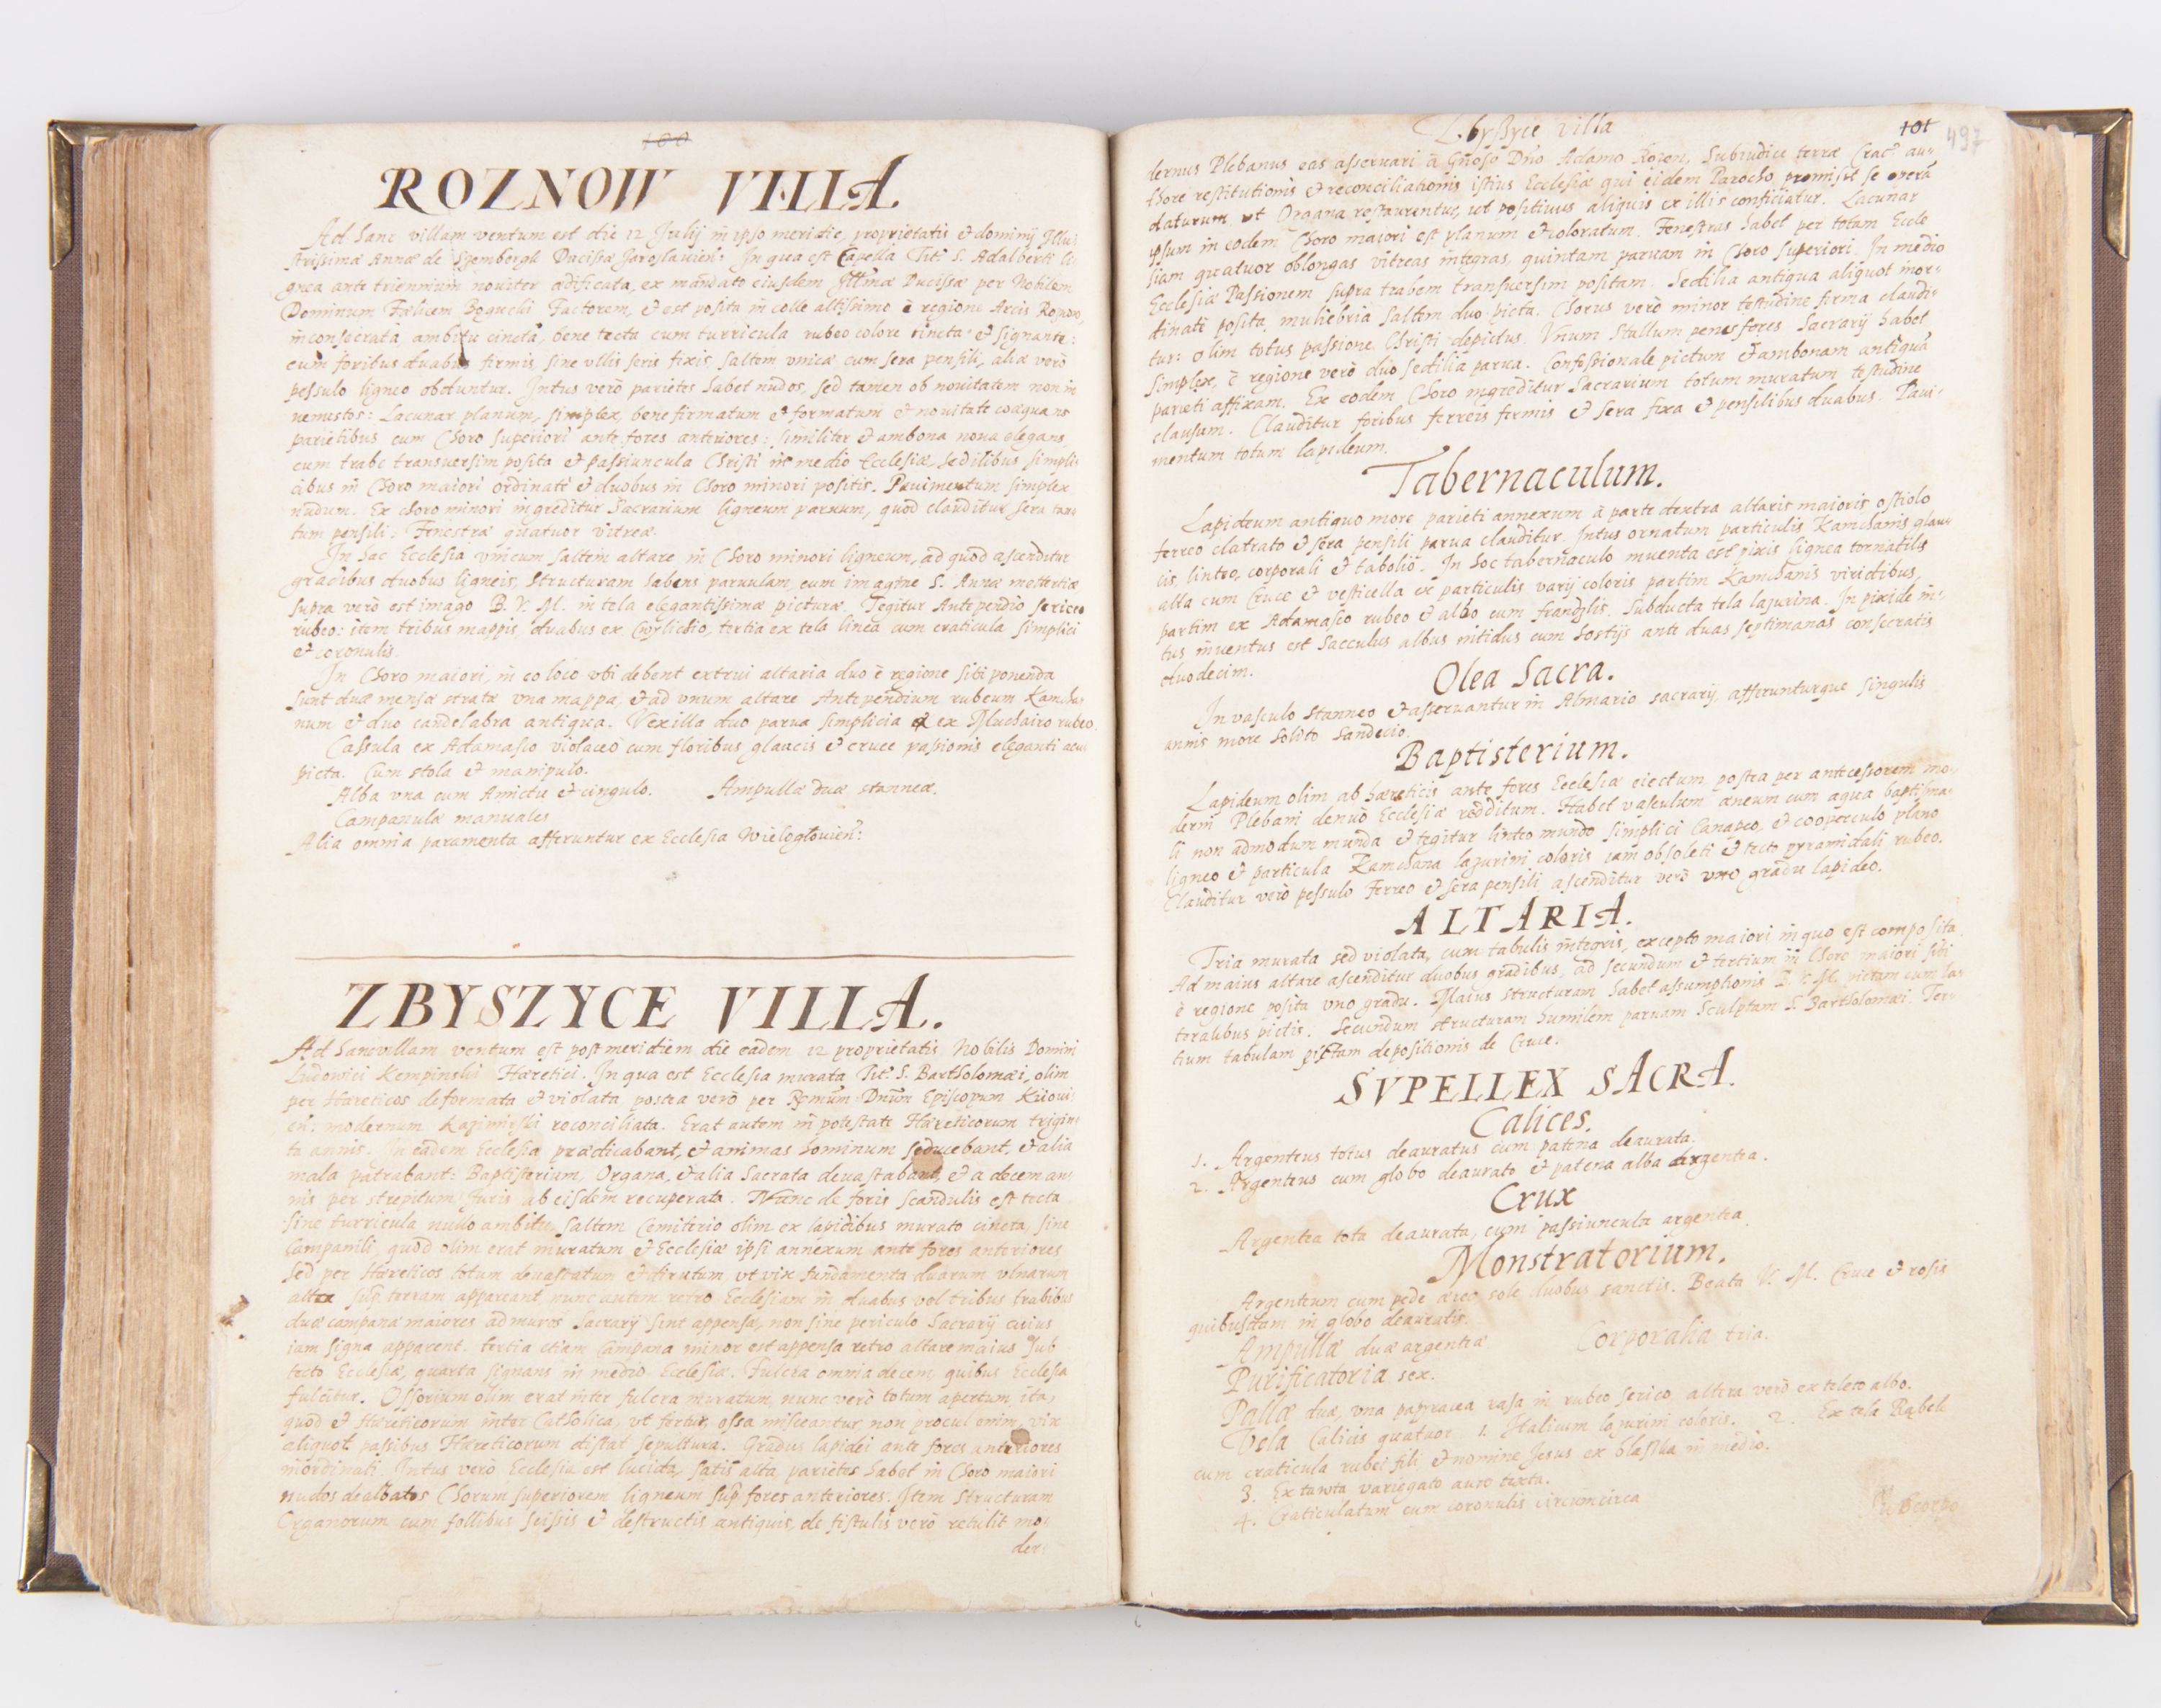 100
ROZNOW VILLA.
Ad hanc villam ventum est die 12 Julij in ipso meridie, proprietatis & dominij Illu-
strissimæ Annæ de Sztembergk Ducissæ Jaroslauien: In qua est Capella Titĩ S. Adalberti li-
gnea ante triennium nouiter ædificata, ex mandato eiusdem Illmæ Ducissæ per Nobilem
Dominum Fælicem Factorem, & est posita in colle altissimo è regione Arcis Roznow,
inconsecrata, ambitu cincta, bene tecta cum turricula rubeo colore tincta & signante:
cum foribus duabus firmis, sine vllis seris fixis, saltem vnica cum sera pensili, aliæ verò
pessulo ligneo obduntur. Intus verò parietes habet nudos, sed tamen ob nouitatem non in
nemustos: Lacunar planum, simplex, bene firmatum & formatum & nouitate coæquans
parietibus cum Choro superiori ante fores anteriores: similiter & ambona noua elegans
cum trabe transuersim posita & Passiuncula Christi in medio Ecclesiæ, sedilibus simpli-
cibus in Choro maiori ordinatè & duobus in Choro minori positis. Pauimentum simplex
nudum. Ex choro minori ingreditur Sacrarium ligneum paruum, quod clauditur sera tan-
tum pensili. Fenestræ quatuor vitreæ.
In hac Ecclesia vnicum saltem altare in Choro minori ligneum, ad quod ascenditur
gradibus duobus ligneis, structuram habens paruulam, cum imagine S. Annæ mettertiæ
supra verò est imago B. V. M. in tela elegantissimæ picturæ. Tegitur Antependio sericeo
rubeo: item tribus mappis, duabus ex Cwylichio, tertia ex tela linea cum craticula simplici
& coronulis.
In Choro maiori, in eo loco vbi debent extrui altaria duo è regione sibi ponenda
sunt duæ mensæ stratæ vna mappa, & ad vnum altare Antependium rubeum Kamcha-
num & duo candelabra antiqua. Vexilla duo parua simplicia ex Muchairo rubeo.
Cassula ex Adamasco violaceo cum floribus glaucis & cruce passionis eleganti acu
picta. Cum stola & manipulo.
Alba vna cum Amictu & cingulo. Ampullæ duæ stanneæ.
Campanulæ manuales
Alia omnia paramenta afferuntur ex Ecclesia Wielogłouien:
ZBYSZYCE VILLA.
Ad hanc villam ventum est post meridiem die eadem 12 proprietatis Nobilis Domini
Ludouici Kempinski Hæretici. In qua est Ecclesia murata Titĩ S. Bartholomæi, olim
per Hæreticos deformata & violata postea verò per Rmum Dnum Episcopum Kiioui-
en: modernum Kazimirski reconciliata. Erat autem in potestate Hæreticorum trigin-
ta annis. In eadem Ecclesia prædicabant, & animas hominum seducebant, & alia
mala patrabant: Baptisterium, Organa, & alia Sacrata deuastabant, & a decem an-
nis per strepitum Juris ab eisdem recuperata. Nunc de foris scandulis est tecta
sine turricula nullo ambitu, saltem Cemiterio olim ex lapidibus murato cincta, sine
Campanili, quod olim erat muratum & Ecclesiæ ipsi annexum ante fores anteriores
sed per Hæreticos totum deuastatum & dirutum, vt vix fundamenta duarum vlnarum
alta sup terram appareant, nunc autem retro Ecclesiam in duabus vel tribus trabibus
duæ campanæ maiores ad muros Sacrarij sint appensæ, non sine periculo Sacrarij cuius
iam signa apparent. tertia etiam Campana minor est appensa retro altare maius sub
tecto Ecclesiæ, quarta signans in medio Ecclesiæ. Fulcra omnia decem, quibus Ecclesia
fulcitur. Ossorium olim erat inter fulcra muratum, nunc verò totum apertum, ita,
quod & Hæreticorum inter Catholica, vt fertur, ossa misceantur non procul enim, vix
aliquot passibus Hæreticorum distat sepultura. Gradus lapidei ante fores anteriores
inordinati. Intus verò Ecclesia est lucida, satis alta, parietes habet in Choro maiori
nudos dealbatos Chorum superiorem ligneum sup fores anteriores. Item structuram
Organorum cum follibus scissis & destructis antiquis, de fistulis verò retulit mo-
der-
Zbyszyce villa
101
497
dernus Plebanus eas asseruari à Gnoso Dno Adamo Rozen, Subiudice terræ Crac: au-
thore restitutionis & reconciliationis istius Ecclesiæ qui eidem Parocho promisit se operã
daturum vt Organa restaurentur, vel positiuus aliquis ex illis conficiatur. Lacunar
ipsum in eodem Choro maiori est planum & coloratum. Fenestras habet per totam Eccle
siam quatuor oblongas vitreas integras, quintam paruam in Choro superiori. In medio
Ecclesiæ Passionem supra trabem transuersim positam. Sedilia antiqua aliquot inor-
dinatè posita, muliebria saltem duo picta. Chorus verò minor testudine firma claudi-
tur: olim totus passione Christi depictus. Vnum Stallum penes fores Sacrarij habet
simplex, è regione verò duo sedilia parua. Confessionale pictum & ambonam antiquã
parieti affixam. Ex eodem Choro ingreditur Sacrarium totum muratum testudine
clausam. Clauditur foribus ferreis firmis & sera fixa & pensilibus duabus. Paui-
mentum totum lapideum.
Tabernaculum.
Lapideum antiquo more parieti annexum à parte dextra altaris maioris ostiolo
ferreo clatrato & sera pensili parua clauditur. Intus ornatum particulis Kamchanis glau-
cis, linteo, corporali & tabolio. In hoc tabernaculo inuenta est pixis lignea tornatilis
alta cum Cruce & vesticella ex particulis varij coloris partim Kamchanis viridibus,
partim ex Adamasco rubeo & albo cum frandzlis. Subducta tela lazurina. In pixide in-
tus inuentus est Sacculus albus nitidus cum hostijs ante duas septimanas consecratis
duodecim.
Olea Sacra.
In vasculo stanneo & asseruantur in Almario sacrarij, afferunturque singulis
annis more solito Sandecio.
Baptisterium.
Lapideum olim ab hæreticis ante fores Ecclesiæ eiectum, postea per antecessorem mo-
derni Plebani denuò Ecclesiæ redditum. Habet vasculum æneum cum aqua baptisma-
li non admodum munda & tegitur linteo mundo simplici Canapeo, & cooperculo plano
ligneo & particula Kamchana lazurini coloris iam obsoleti & tecto pyramidali rubeo.
Clauditur verò pessulo ferreo & sera pensili, ascenditur verò vno gradu lapideo.
ALTARIA.
Tria murata sed violata, cum tabulis integris, excepto maiori in quo est composita.
Ad maius altare ascenditur duobus gradibus, ad secundum & tertium in Choro maiori sibi
è regione posita vno gradu. Maius structuram habet assumptionis B. V. M. pictam cum la-
teralibus pictis. Secundum structuram humilem paruam Sculptam S. Bartholomæi. Ter-
tium tabulam pictam depositionis de Cruce.
SVPELLEX SACRA.
Calices.
1. Argenteus totus deauratus cum patena deaurata.
2. Argenteus cum globo deaurato & patena alba argentea.
Crux
Argentea tota deaurata, cum passiuncula argentea.
Monstratorium.
Argenteum cum pede æreo sole duobus sanctis. Beata V. M. Cruce & rosis
quibusdam in globo deauratis.
Ampullæ duæ argenteæ Corporalia tria.
Purificatoria sex.
Pallæ duæ, vna papyracea rasa in rubeo serico altera verò ex teleto albo.
Vela Calicis quatuor 1. Italicum lazurini coloris. 2. Ex tela Rąbek
cum craticula rubei fili & nomine Jesus ex blaszka in medio.
3. Ex tawta variegato auro texta.
4. Craticulatum cum coronulis circumcirca